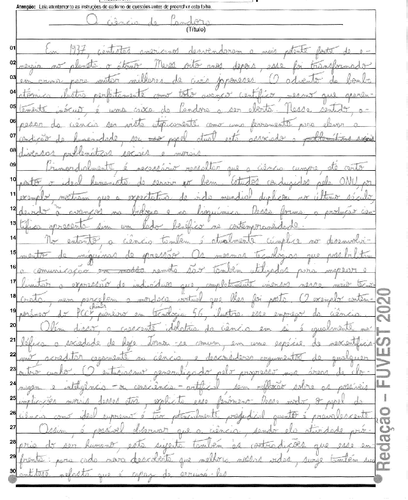 Atenção: Leia atentamente as instruções do caderno de questões antes de preencher esta folha.
A ciência de Pandora
(Título)
01 Em 1937, cientistas americanos desvendaram a mais potente fonte de e-
02 nergia no planeta o átomo. Meses oito anos depois, esse foi transformado
03 em arma para matar milhares de civis japoneses. O advento da bomba
04 atômica ilustra perfeitamente como todo avanço científico, mesmo que aparen-
05 temente inócuo, é uma caixa de Pandora a ser aberta. Nesse sentido, o
06 papel da ciência ser vista tipicamente como uma ferramenta para elevar a
07 condição da humanidade, seu papel atual está associado
08 diversas problemáticas sociais e morais.
09 Primordialmente, é necessário ressaltar que a ciência cumpre, até certo
10 ponto, o ideal humanista de servir ao bem. Estudos conduzidos pela ONU, por
11 exemplo, mostram que a expectativa de vida mundial duplicou no último século,
12 devido a avanços na biologia e na bioquímica. Dessa forma, a produção cien-
13 tífica apresenta sim um lado benéfico na contemporaneidade.
14 No entanto, a ciência também é atualmente cúmplice no desenvolvi-
15 mento de máquinas de opressão. As mesmas tecnologias que possibilitam
16 a comunicação remota são também utilizadas para impedir e
17 limitar a expressão de indivíduos que
18 nem percebem a mordaça virtual que lhes foi posta. O exemplo contem-
19 porâneo do pioneiro em tecnologia 5G, ilustra esse emprego da ciência.
20 Além disso, a crescente idolatria da ciência em si é igualmente ma-
21 léfica a sociedade de hoje. Torna-se comum, em uma espécie de neocientificis-
22 mo, acreditar cegamente na ciência e desacreditar argumentos de qualquer
23 outro cunho. O entusiasmo generalizado pelo progresso nas áreas de clo-
24 nagem e inteligência artificial sem reflexão sobre as possíveis
25 implicações morais desses atos explicita esse fenômeno. Desse modo, o papel da
26 ciência como ideal supremo é tão atualmente prejudicial quanto é prevalecente.
27 Assim, é possível discernir que a ciência, sendo ela atividade pró-
28 pria do ser humano, está sujeita também às contradições que esse en-
29 frenta: para cada nova descoberta que melhora nossas vidas, surge também sua
30 antítese nefasta que é capaz de
Redação – FUVEST 2020